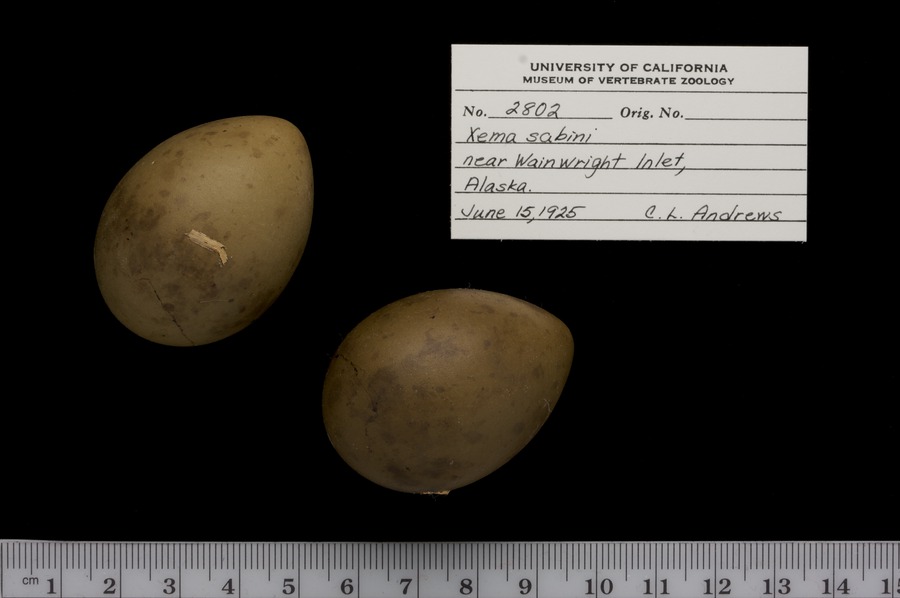 UNIVERSITY OF CALIFORNIA
MUSEUM OF VERTEBRATE ZOOLOGY
No. 2802 Orig. No.
Xema sabini
near Wainwright Inlet,
Alaska.
June 15, 1925 C. L. Andrews
cm 1 2 3 4 5 6 7 8 9 10 11 12 13 14 15